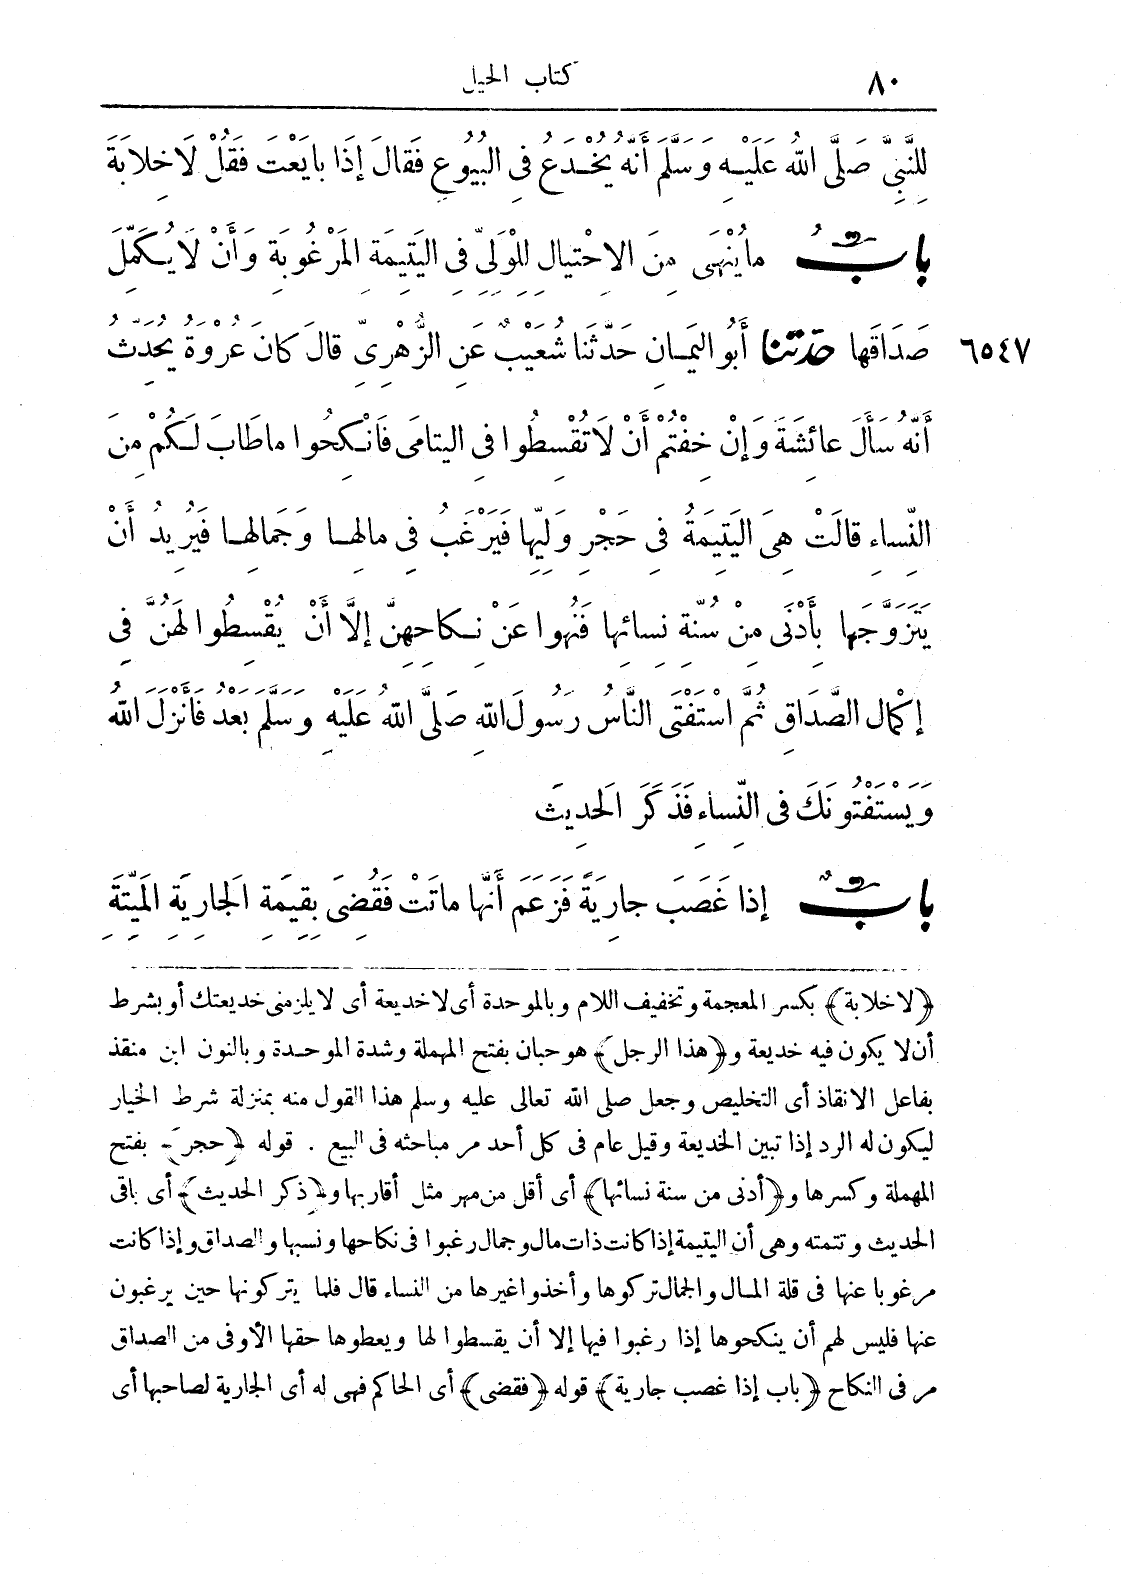 ٨٠
كتاب الحيل
للنَّبِيِّ صَلَّى اللهُ عَلَيْهِ وَسَلَّمَ أَنَّهُ يُخْدَعُ فِى البُيُوعِ فَقالَ إذَا بايَعْتَ فَقُلْ لَا خِلابَةَ
بابُ مايُنْهَى مِنَ الاحْتِيالِ لِلْوَلِىِّ فِى اليَتِيمَةِ المَرْغُوبَةِ وَأَنْ لَا يُكَمِّلَ
صَدَاقَها حَدَّثَنا أَبُو اليَمانِ حَدَّثَنا شُعَيْبٌ عَنِ الزُّهْرِىِّ قالَ كانَ عُرْوَةُ يُحَدِّثُ ٦٥٤٧
أَنَّهُ سَأَلَ عائِشَةَ وَإِنْ خِفْتُمْ أَنْ لَا تُقْسِطُوا فِى اليتامَى فَانْكِحُوا ماطَابَ لَكُمْ مِنَ
النِّساءِ قالَتْ هِىَ اليَتِيمَةُ فِى حَجْرِ وَلِيِّها فَيَرْغَبُ فِى مالِها وَجَمالِها فَيُرِيدُ أَنْ
يَتَزَوَّجَها بِأَدْنَى مِنْ سُنَّةِ نِسائِها فَنُهُوا عَنْ نِكاحِهِنَّ إلَّا أَنْ يُقْسِطُوا لَهُنَّ فِى
إكْمالِ الصَّدَاقِ ثُمَّ اسْتَفْتَى النَّاسُ رَسُولَ اللهِ صَلَّى اللهُ عَلَيْهِ وَسَلَّمَ بَعْدُ فَأَنْزَلَ اللهُ
وَيَسْتَفْتُونَكَ فِى النِّساءِ فَذَكَرَ الحَدِيثَ
بابٌ إذا غَصَبَ جارِيَةً فَزَعَمَ أَنَّها ماتَتْ فَقُضِىَ بِقِيمَةِ الجارِيَةِ المَيِّتَةِ
﴿لا خلابة﴾ بكسر المعجمة وتخفيف اللام وبالموحدة أى لا خديعة أى لا يلزمنى خديعتك أو بشرط
أن لا يكون فيه خديعة و﴿هذا الرجل﴾ هو حبان بفتح المهملة وشدة الموحدة وبالنون ابن منقذ
بفاعل الانقاذ أى التخليص وجعل صلى الله تعالى عليه وسلم هذا القول منه بمنزلة شرط الخيار
ليكون له الرد إذا تبين الخديعة وقيل عام فى كل أحد مر مباحثه فى البيع . قوله ﴿حجر﴾ بفتح
المهملة وكسرها و﴿أدنى من سنة نسائها﴾ أى أقل من مهر مثل أقاربها و﴿ذكر الحديث﴾ أى باقى
الحديث وتتمته وهى أن اليتيمة إذا كانت ذات مال وجمال رغبوا فى نكاحها ونسبها والصداق وإذا كانت
مرغوبا عنها فى قلة المال والجمال تركوها وأخذوا غيرها من النساء قال فلما يتركونها حين يرغبون
عنها فليس لهم أن ينكحوها إذا رغبوا فيها إلا أن يقسطوا لها ويعطوها حقها الأوفى من الصداق
مر فى النكاح ﴿باب إذا غصب جارية﴾ قوله ﴿فقضى﴾ أى الحاكم فهى له أى الجارية لصاحبها أى